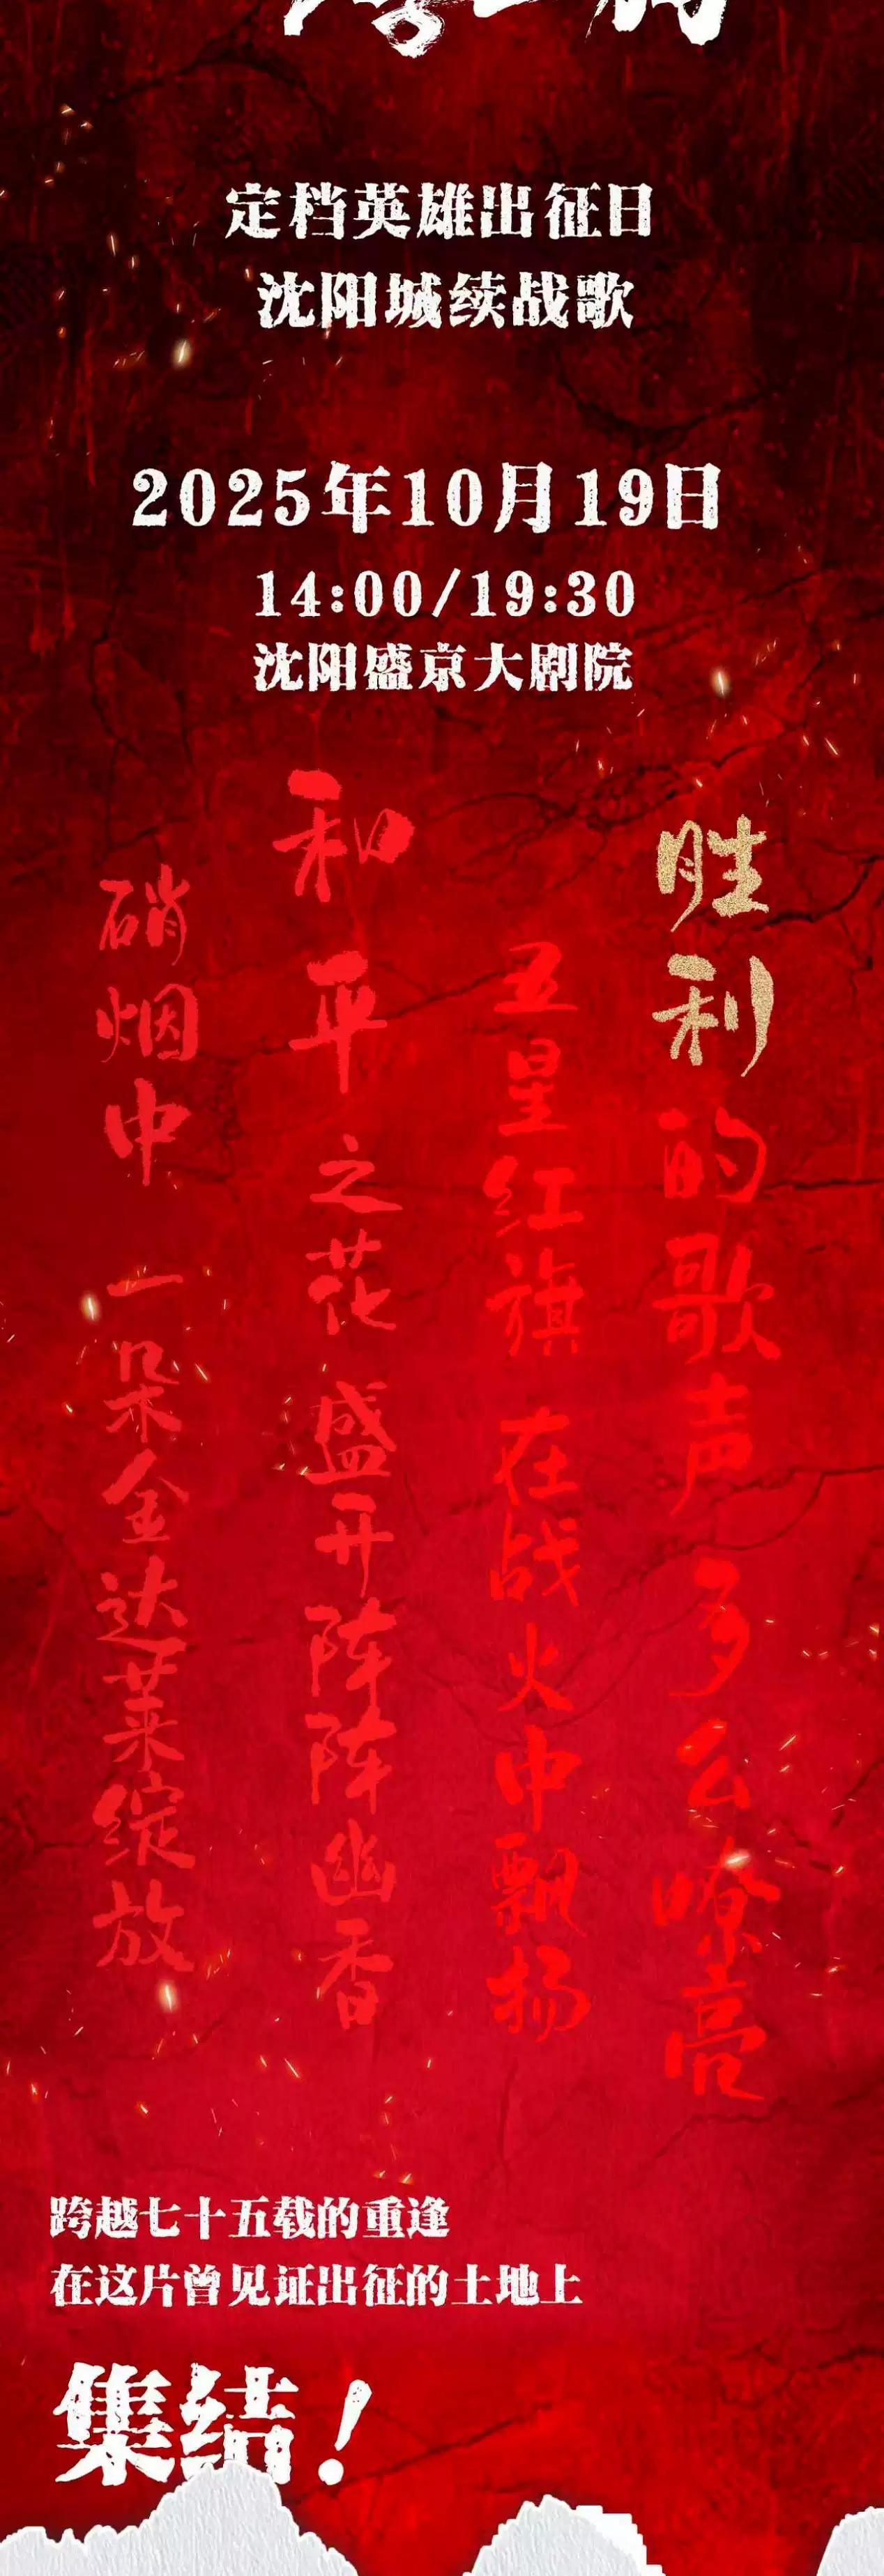 定档英雄出征日
沈阳城续战歌
2025年10月19日
14:00/19:30
沈阳盛京大剧院
胜利的歌声 多么嘹亮
五星红旗 在战火中飘扬
和平之花 盛开阵阵幽香
硝烟中 一朵金达莱绽放
跨越七十五载的重逢
在这片曾见证出征的土地上
集结！